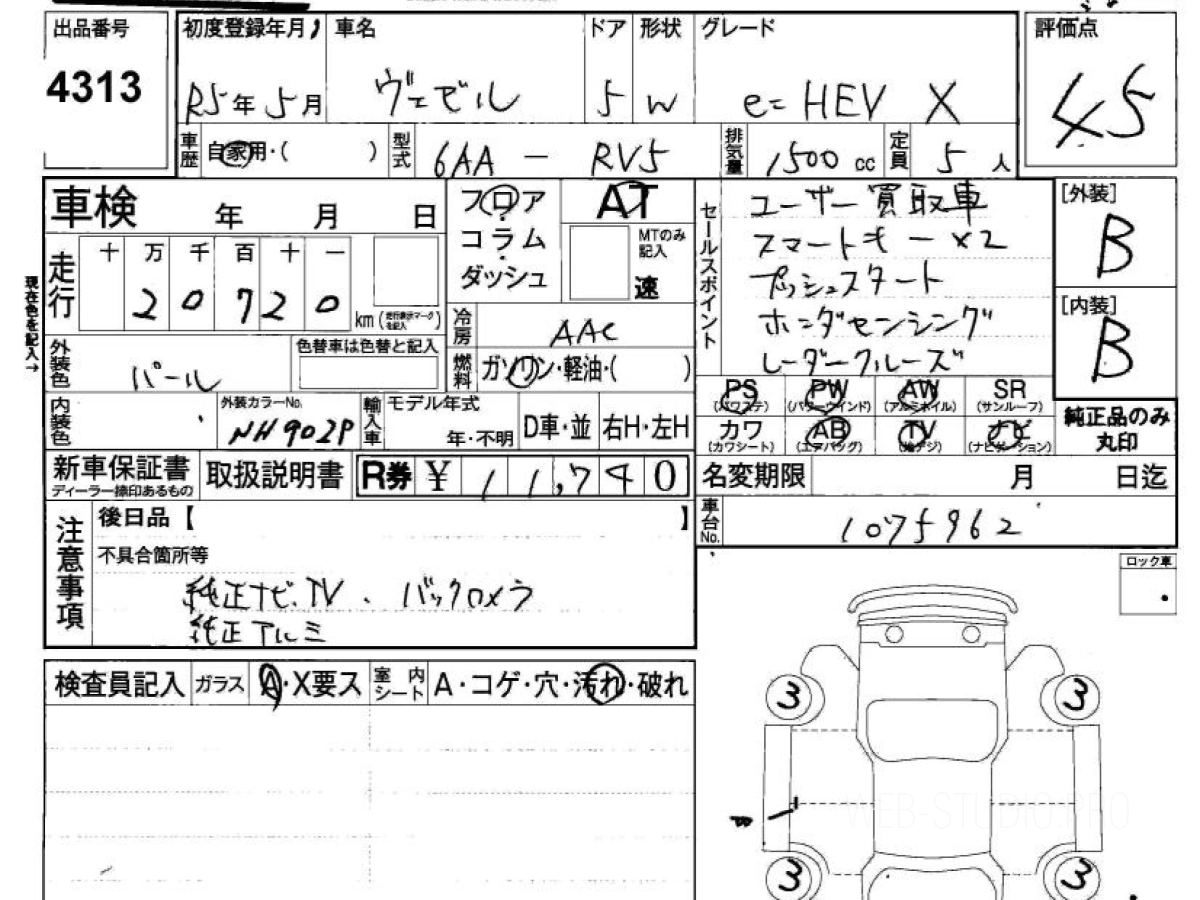 出品番号 初度登録年月 車名 ドア 形状 グレード 評価点
4313 R5年5月 ヴェゼル 5 W e=HEV X 45
車歴 自家用・( ) 型式 6AA - RV5 排気量 1500 cc 定員 5 人
車検 年 月 日 フロア AT セールスポイント ユーザー買取車 [外装]
コラム MTのみ記入 スマートキー×2 B
走行 十 万 千 百 十 一 ダッシュ 速 プッシュスタート
2 0 7 2 0 km (走行表示マークを記入) ホンダセンシング [内装]
現在色を記入→ 冷房 AAC レーダークルーズ B
外装色 パール 色替車は色替と記入 燃料 ガソリン・軽油・( )
PS (パワステ) PW (パワーウインド) AW (アルミホイル) SR (サンルーフ)
内装色 外装カラーNo. NH902P 輸入車 モデル年式 年・不明 D車・並 右H・左H
カワ (カワシート) AB (エアバッグ) TV (地デジ) ナビ (ナビゲーション) 純正品のみ丸印
新車保証書 ディーラー捺印あるもの 取扱説明書 R券 ¥ 11,740 名変期限 月 日迄
注意事項 後日品【 】 車台No. 1075962
不具合箇所等
純正ナビ.TV . バックカメラ
純正アルミ
ロック車
検査員記入 ガラス A・X要ス 室内シート A・コゲ・穴・汚れ・破れ
3 3
WEB-STUDIO.PRO
3 3